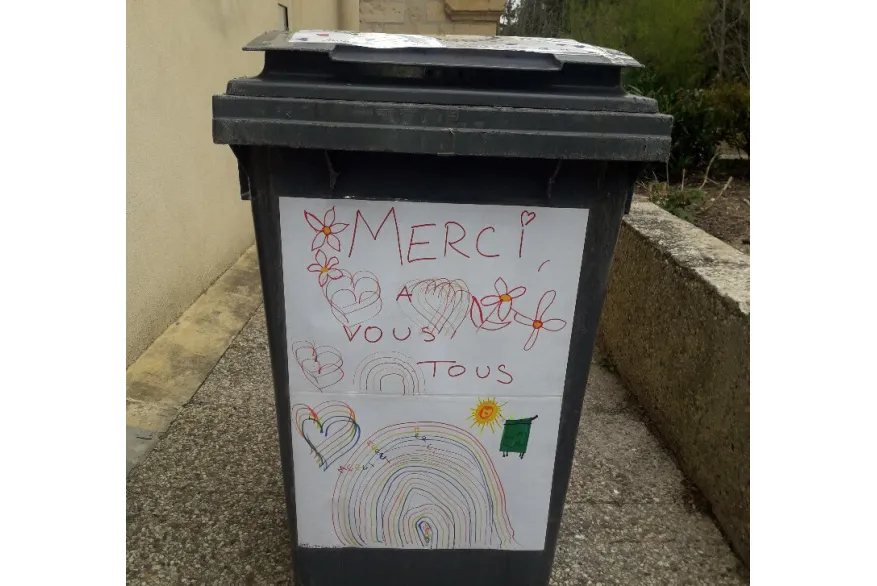 MERCI
A
VOUS
TOUS